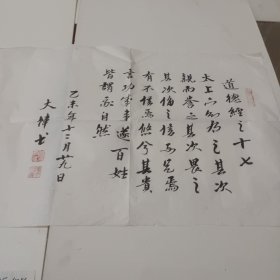 道德經之十七
太上不知有之其次
親而譽之其次畏之
其次侮之信不足焉
有不信焉悠兮其貴
言功成事遂百姓
皆謂我自然
乙未年十二月廿九日
大偉书